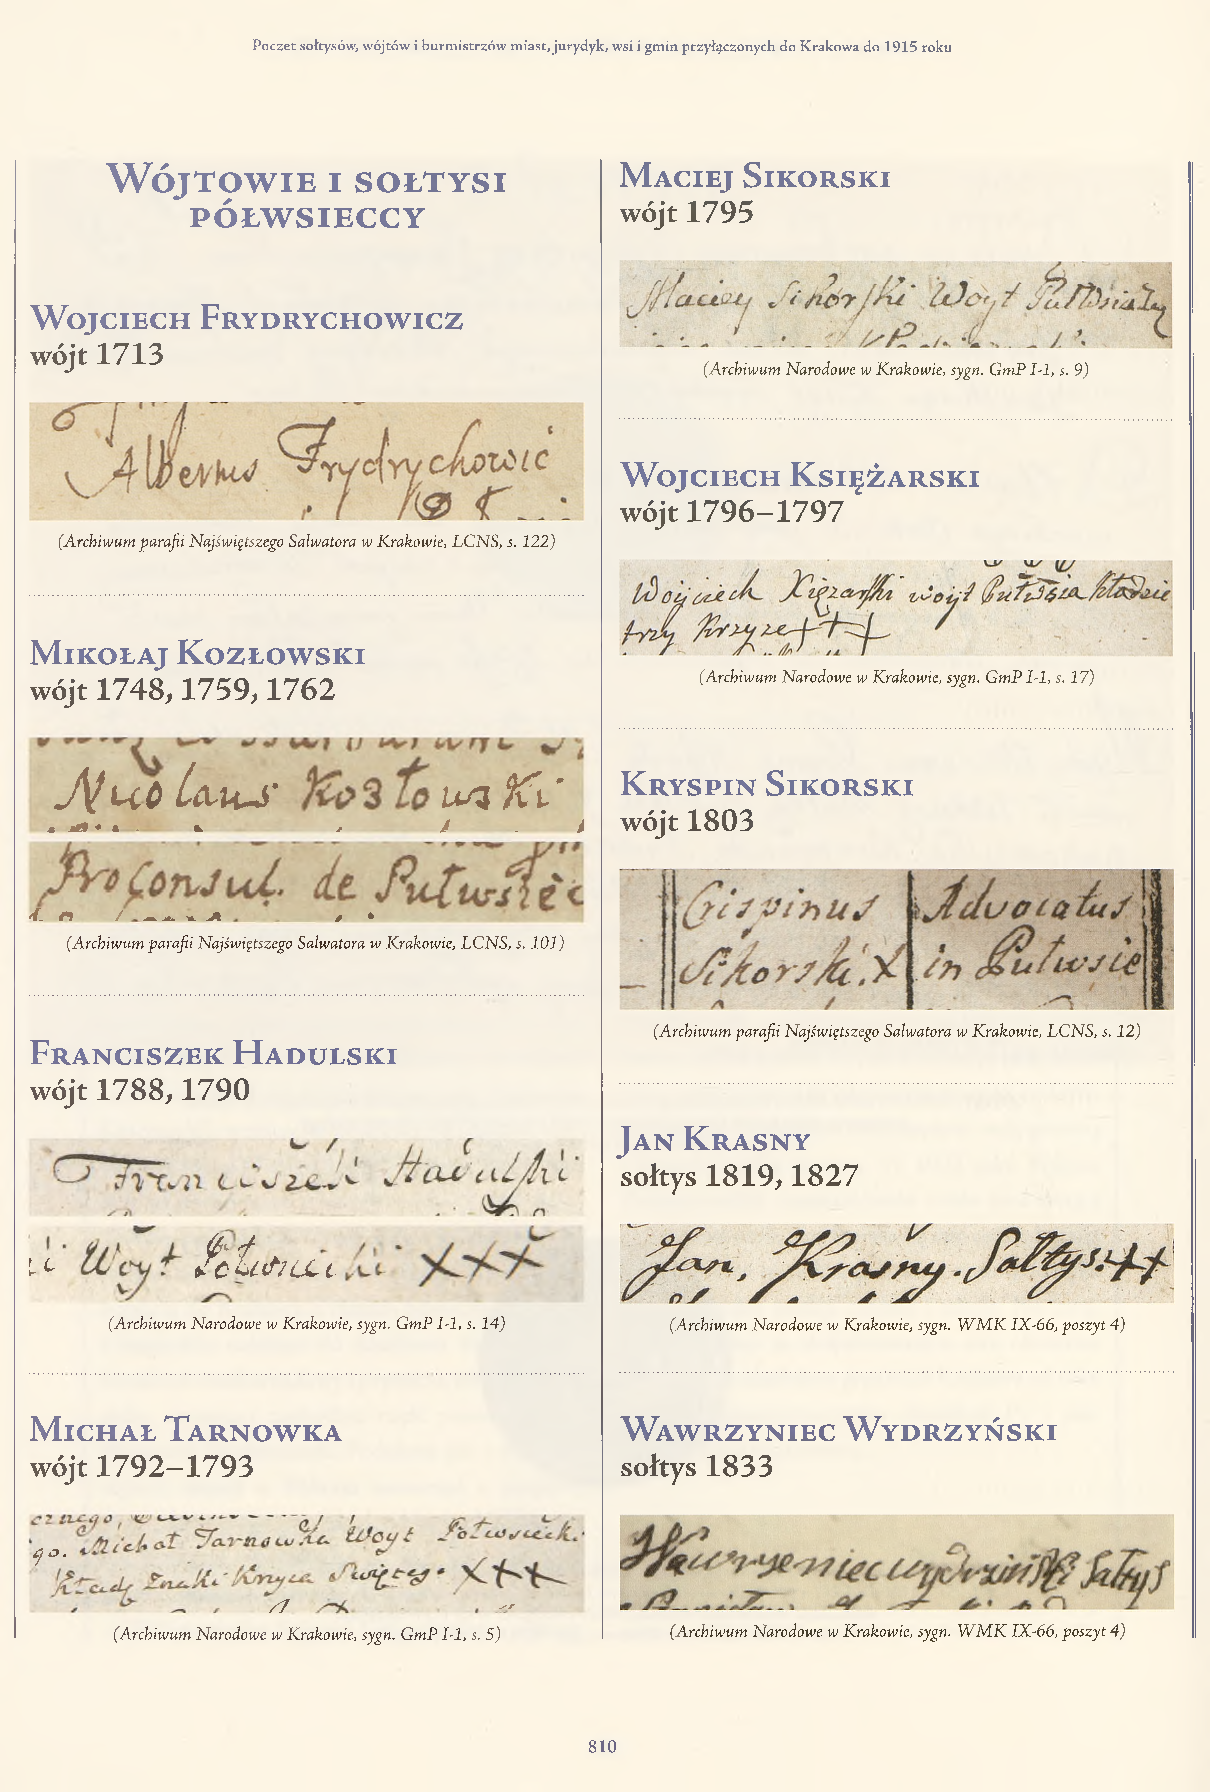 Poczet sołtysów, wójtów i burmistrzów miast, jurydyk, wsi i gmin przyłączonych do Krakowa do 1915 roku
Wójtowie i sołtysi
półwsieccy
Wojciech Frydrychowicz
wójt 1713
Albertus Frydrychowic
(Archiwum parafii Najświętszego Salwatora w Krakowie, LCNS, s. 122)
Mikołaj Kozłowski
wójt 1748, 1759, 1762
Nicolaus Kozłowski
Proconsul. de Pułwsie
(Archiwum parafii Najświętszego Salwatora w Krakowie, LCNS, s. 101)
Franciszek Hadulski
wójt 1788, 1790
Franciszek Hadulski
Woyt Połwsiecki XXX
(Archiwum Narodowe w Krakowie, sygn. GmP I-1, s. 14)
Michał Tarnowka
wójt 1792–1793
go. Michał Tarnowka Woyt Połwsiecki
Kładę Znaki Krzyza Swiętego XXX
(Archiwum Narodowe w Krakowie, sygn. GmP I-1, s. 5)
Maciej Sikorski
wójt 1795
Maciey Sikorski Woyt
(Archiwum Narodowe w Krakowie, sygn. GmP I-1, s. 9)
Wojciech Księżarski
wójt 1796–1797
Woyciech Xięzarski woyt Pułwsia kładzie
trzy Krzyze +++
(Archiwum Narodowe w Krakowie, sygn. GmP I-1, s. 17)
Kryspin Sikorski
wójt 1803
Crispinus Advocatus
Sikorski. X in Pułwsie
(Archiwum parafii Najświętszego Salwatora w Krakowie, LCNS, s. 12)
Jan Krasny
sołtys 1819, 1827
Jan. Krasny. Sołtys. ++
(Archiwum Narodowe w Krakowie, sygn. WMK IX-66, poszyt 4)
Wawrzyniec Wydrzyński
sołtys 1833
Wawrzeniec wydrzinski Sołtys
(Archiwum Narodowe w Krakowie, sygn. WMK IX-66, poszyt 4)
810